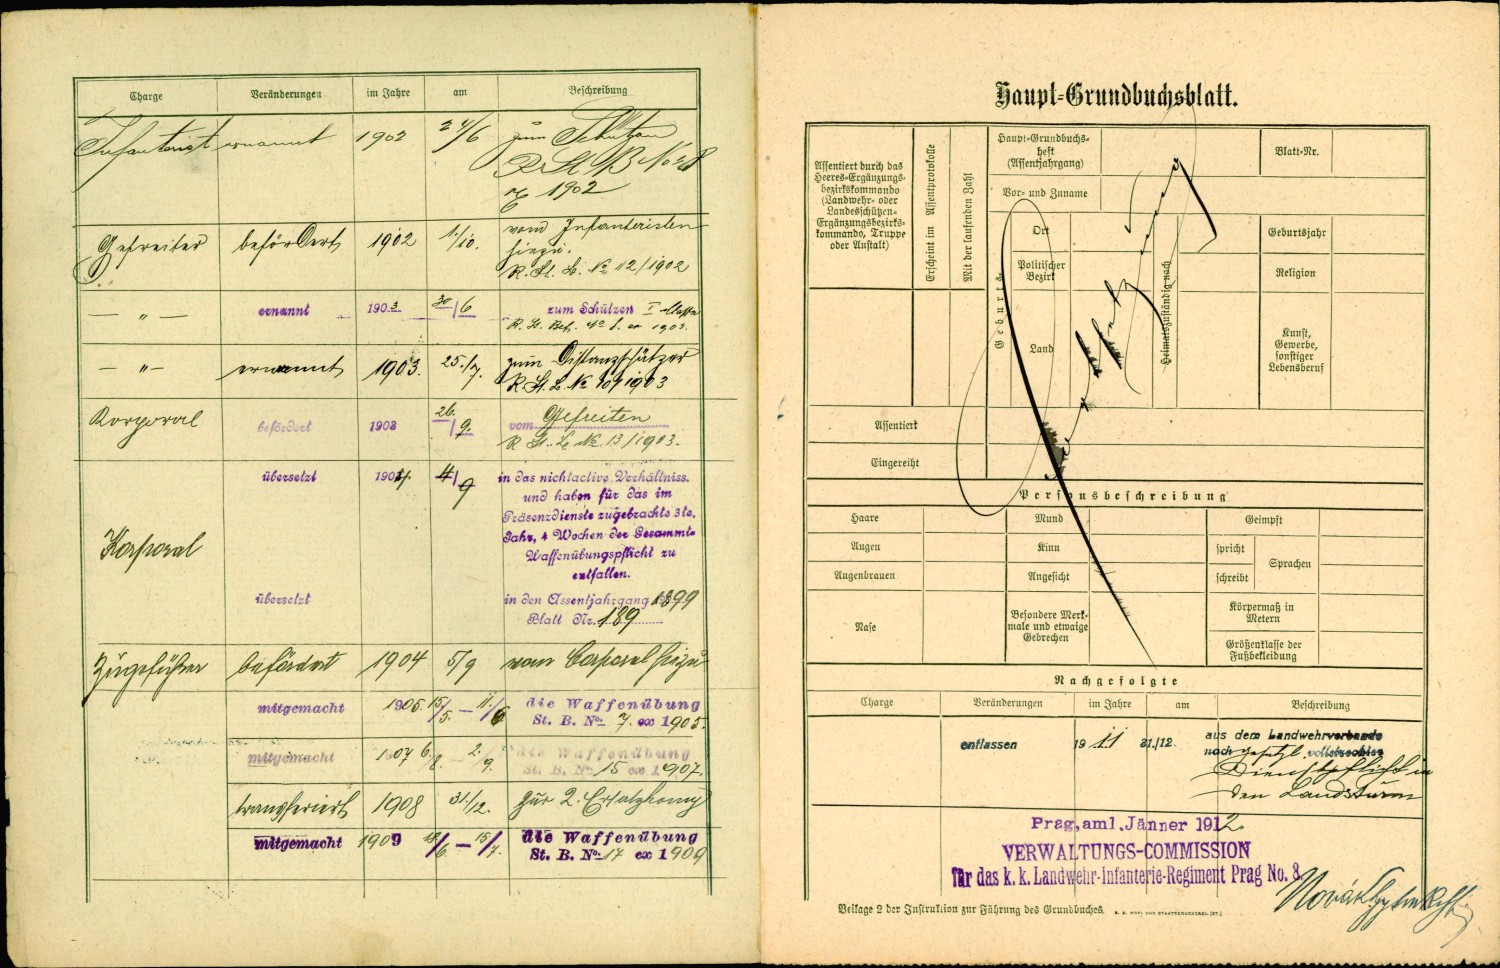 Charge Veränderungen im Jahre am Beschreibung
Infanterist ernannt 1902 24/6 zum Schützen
R. St. B. No 28
1902
Gefreiter befördert 1902 1./10. vom Infanteristen
hiezu.
R. St. B. No 112/1902
— „ — ernannt 1903 30/6 zum Schützen I Klasse
— „ — ernannt 1903. 25./7. zum Distanzschützer
1903
Korporal befördert 1903 26./9. vom Gefreiten
R. St. B. No 13/1903.
Korporal übersetzt 1904 4/9 in das nichtactive Verhältniss.
und haben für das im
Präsenzdienste zugebrachte 3te.
Jahr, 4 Wochen der Gesammt-
Waffenübungspflicht zu
entfallen.
übersetzt in den Assentjahrgang 1899
Blatt Nr. 189
Zugsführer befördert 1904 5/9 vom Corporal hiezu
mitgemacht 1905 15/5. — 11./6 die Waffenübung
St. B. No. 7. ex 1905.
mitgemacht 1907 6./8. — 2./9. die Waffenübung
St. B. No. 15 ex 1907.
transferiert 1908 31./12. zur 2. Ersatzkomp
mitgemacht 1909 18/6. — 15/7. die Waffenübung
St. B. No. 17 ex 1909
Haupt-Grundbuchsblatt.
Assentiert durch das
Heeres-Ergänzungs-
bezirkskommando
(Landwehr- oder
Landesschützen-
Ergänzungsbezirks-
kommando, Truppe
oder Anstalt)
Erscheint im Assentprotokolle
Mit der laufenden Zahl
Haupt-Grundbuchs-
heft
(Assentjahrgang)
Blatt-Nr.
Vor- und Zuname
Geburts-
Ort
Politischer
Bezirk
Land
Heimatszuständig nach
Geburtsjahr
Religion
Kunst,
Gewerbe,
sonstiger
Lebensberuf
Assentiert
Eingereiht
Personsbeschreibung
Haare Mund Geimpft
Augen Kinn spricht Sprachen
Augenbrauen Angesicht schreibt
Nase Besondere Merk-
male und etwaige
Gebrechen
Körpermaß in
Metern
Größenklasse der
Fußbekleidung
Nachgefolgte
Charge Veränderungen im Jahre am Beschreibung
entlassen 1911 31./12. aus dem Landwehrverbande
nach gesetzl. vollstreckter
Dienstpflicht in
den Landsturm
Prag, am 1. Jänner 1912.
VERWALTUNGS-COMMISSION
für das k. k. Landwehr-Infanterie-Regiment Prag No. 8.
Beilage 2 der Instruktion zur Führung des Grundbuches. K. K. HOF- UND STAATSDRUCKEREI. (ST.)